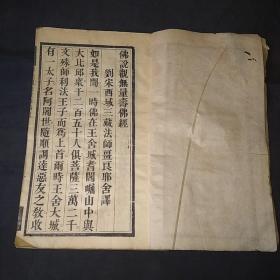 佛說觀無量壽佛經
劉宋西域三藏法師畺良耶舍譯
如是我聞一時佛在王舍城耆闍崛山中與
大比邱衆千二百五十人俱菩薩三萬二千
文殊師利法王子而爲上首爾時王舍大城
有一太子名阿闍世隨順調達惡友之敎收